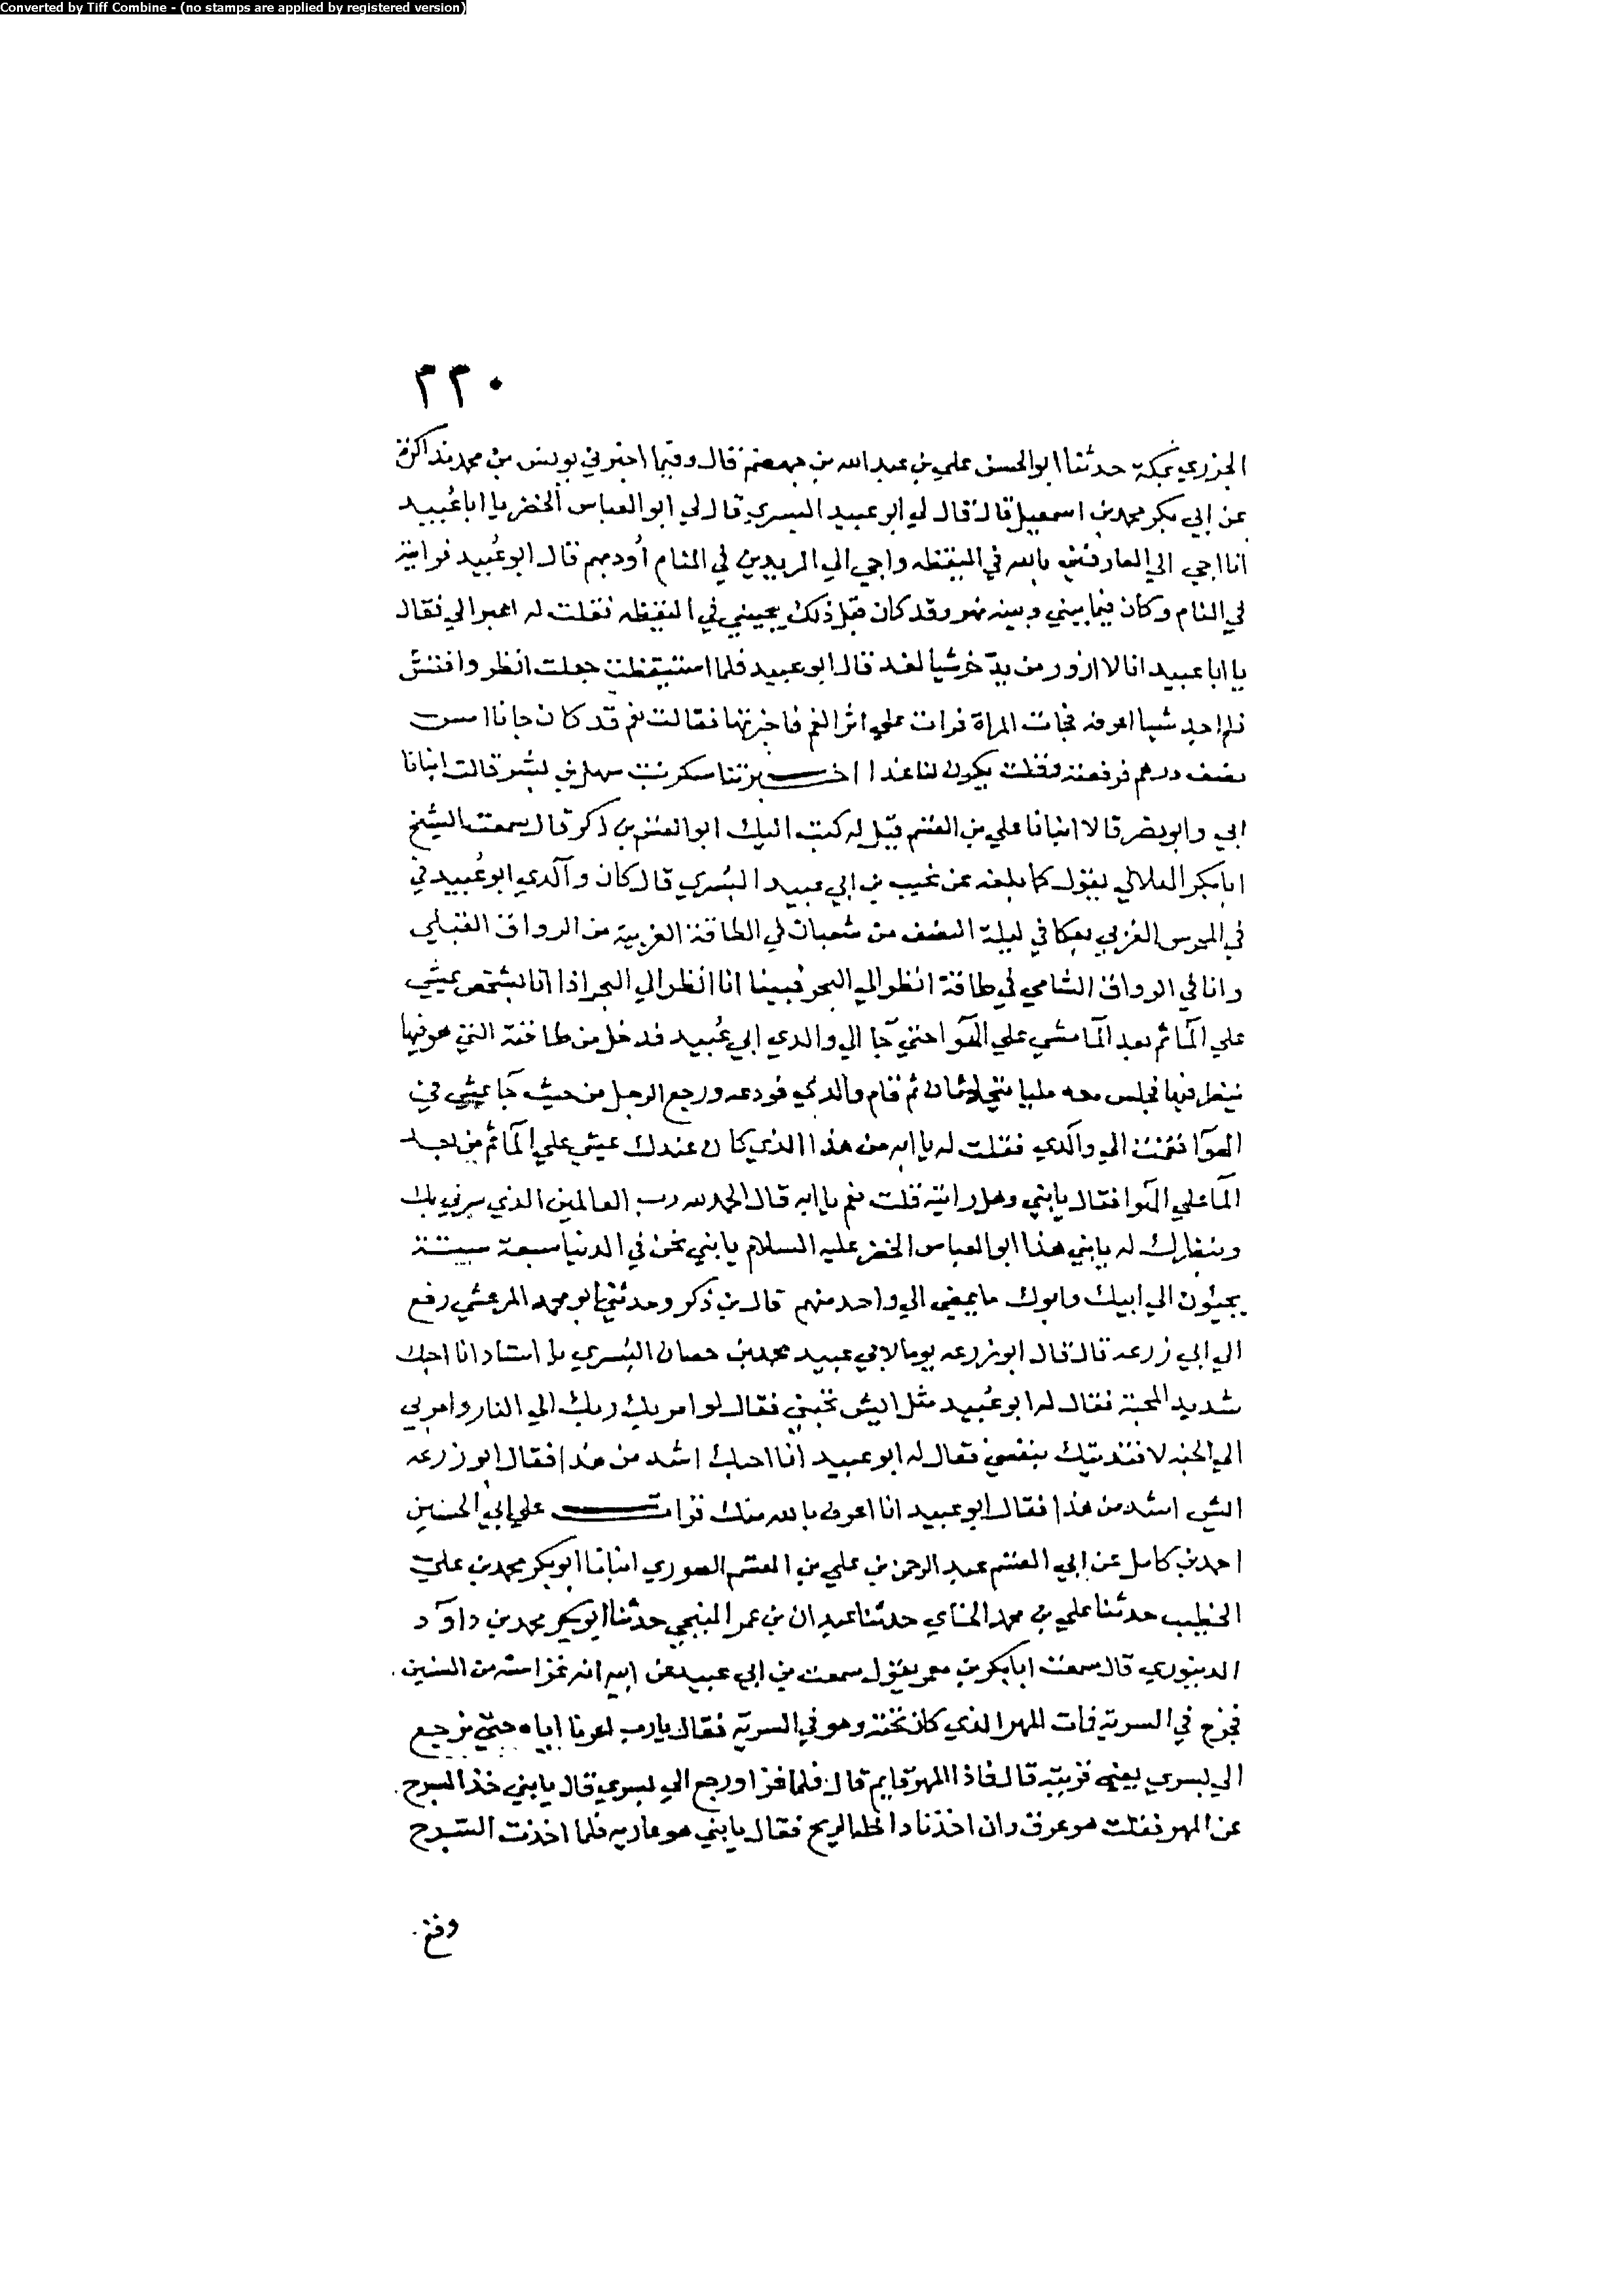 Converted by Tiff Combine - (no stamps are applied by registered version)
٣٣٠
الجزري بمكة حدثنا ابو الحسن علي بن عبد الله بن جهضم قال وفيما اخبرني يونس بن محمد مذاكرة
عن ابي بكر محمد بن اسمعيل قال قال لي ابو عبيد البسري قال لي ابو العباس الخضر يا ابا عُبيد
انا اجي الي العارفين بالله في اليقظه واجي الي المريدين في المنام اُودبهم قال ابو عُبيد فرايته
في المنام وكان فيما بيني وبينه نهر وقد كان قبل ذلك يجيبني في اليقظه فقلت له اعبر الي فقال
يا ابا عبيد انا لا ازور من يدّخر شيا لغد قال ابو عبيد فلما استيقظت جعلت انظر وافتش
فلم اجد شيا اعرفه فجات المراة فرات علي اثر الغم فاخبرتها فقالت نعم قد كان جانا امس
نصف درهم فرفعته وقلت يكون لنا غدا اخبرتنا سكر بنت سهل بن بشر قالت انبانا
ابي وابو نصر قالا انبانا علي بن القسم قيل له كتب اليك ابو القسم بن ذكر قال سمعت الشيخ
ابا بكر الهلالي يقول كما بلغه عن نجيب بن ابي عبيد البُسري قال كان وآلدي ابو عُبيد في
في المحرس الغربي بعكا في ليلة النصف من شعبان في الطاقة الغربية من الرواق القبلي
وانا في الرواق الشامي في طاقة انظر الي البحر فبينا انا انظر الي البحر اذا انا بشخص يمشي
علي المآ ثم بعد المآ مشي علي الهوآ حتي جآ الي والدي ابي عُبيد فدخل من طاقته التي هو فيها
ينظر منها فجلس معه مليا يتحدثان ثم قام والدي فودعه ورجع الرجل من حيث جآ يمشي في
الهوآ فقمت الي والدي فقلت له يا ابه من هذا الذي كان عندك يمشي علي المآ ثم من بعد
المآ علي الهوآ فقال يا بني وهل رايته قلت نعم يا ابه قال الحمد لله رب العالمين الذي سرني بك
وبنظرك له يا بني هذا ابو العباس الخضر عليه السلام يا بني نحن في الدنيا سبعة ستة
يجيئون الي ابيك وابوك ما يمضي الي واحد منهم قال بن ذكر وحدثني ابو محمد المرعشي رفع
الي ابي زرعه قال قال ابو زرعه يوما لابي عبيد محمد بن حسان البُسري يا استاد انا احبك
شديد المحبة فقال له ابو عُبيد مثل ايش تحبني فقال لو امر بك ربك الي النار وامر بي
الي الجنه لافتديتك بنفسي فقال له ابو عبيد انا احبك اشد من هذا فقال ابو زرعه
ايش اشد من هذا فقال ابو عبيد انا اعرف بالله منك قرات علي ابي الحسين
احمد بن كامل عن ابي القسم عبد الرحمن بن علي بن القسم الصوري انبانا ابو بكر محمد بن علي
الخطيب حدثنا علي بن محمد الحناي حدثنا عبدان بن عمر المنبجي حدثنا ابو بكر محمد بن داوٓد
الدينوري قال سمعت ابا بكر بن معمر يقول سمعت بن ابي عبيد عن ابيه انه غزا سنه من السنين
فخرج في السرية فمات المهر الذي كان تحته وهو في السرية فقال يا رب اعرنا اياه حتي نرجع
الي بسري يعني قريته قال فاذا المهر قايم قال فلما غزا ورجع الي بسري قال يا بني خذ السرج
عن المهر فقلت هو عرق وان اخذنا داخله الريح فقال يا بني هو عاريه فلما اخذت السّرج
وقع